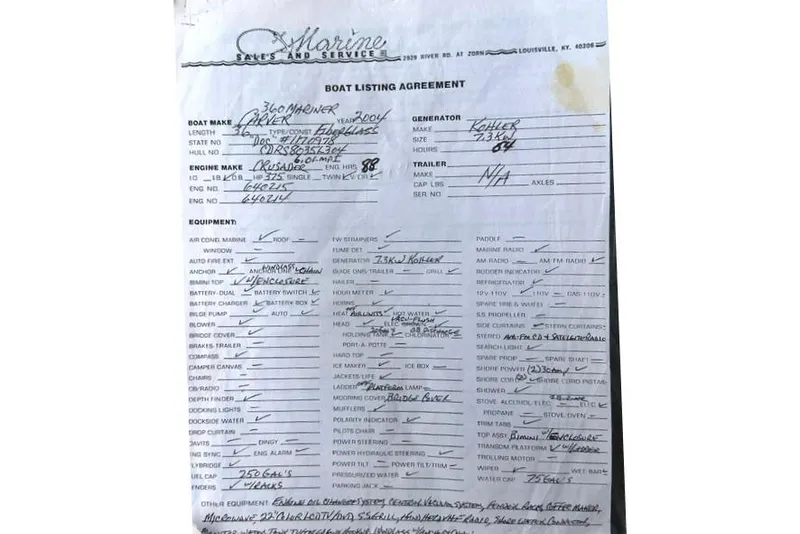 Marine
SALES AND SERVICE 2929 RIVER RD. AT ZORN LOUISVILLE, KY. 40206
BOAT LISTING AGREEMENT
360 MARINER
BOAT MAKE CARVER YEAR 2004
LENGTH 36 TYPE/CONST. FIBERGLASS
STATE NO DOC #
HULL NO.
6.0L MPI
ENGINE MAKE CRUSADER ENG HRS 88
IO IB ✓ OB HP 375 SINGLE TWIN ✓
ENG NO. 640215
ENG NO. 640214
GENERATOR
MAKE KOHLER
SIZE 7.3KW
HOURS 64
TRAILER
MAKE N/A
CAP LBS AXLES
SER NO.
EQUIPMENT:
AIR COND. MARINE ✓ ROOF –
WINDOW –
AUTO FIRE EXT ✓
WINDLASS
ANCHOR ✓ ANCHOR LINE ✓ CHAIN
BIMINI TOP ✓ W/ENCLOSURE
BATTERY-DUAL – BATTERY SWITCH ✓
BATTERY CHARGER ✓ BATTERY BOX ✓
BILGE PUMP ✓ AUTO ✓
BLOWER ✓
BRIDGE COVER ✓
BRAKES-TRAILER –
COMPASS ✓
CAMPER CANVAS –
CHAIRS –
CB/RADIO –
DEPTH FINDER ✓
DOCKING LIGHTS –
DOCKSIDE WATER ✓
DROP CURTAIN –
DAVITS – DINGY –
ENG SYNC ✓ ENG ALARM ✓
FLYBRIDGE ✓
FUEL CAP 250 GAL'S
FENDERS ✓ W/RACKS
FW STRAINERS ✓
FUME DET. ✓
GENERATOR 7.3KW KOHLER
GUIDE ONS-TRAILER – GRILL ✓
HAILER –
HOUR METER ✓
HORNS ✓
HEAT AIR UNITS ✓ HOT WATER ✓
VACU-FLUSH
HEAD ✓ ELEC
HOLDING TANK CHLORINATOR
PORT-A-POTTE –
HARD TOP –
ICE MAKER ✓ ICE BOX –
JACKETS/LIFE ✓
LADDER PLATFORM LAMP –
MOORING COVER BRIDGE COVER
MUFFLERS ✓
POLARITY INDICATOR ✓
PILOTS CHAIR –
POWER STEERING –
POWER HYDRAULIC STEERING ✓
POWER TILT – POWER TILT/TRIM –
PRESSURIZED WATER ✓
PARKING JACK –
PADDLE –
MARINE RADIO ✓
AM RADIO – AM FM RADIO ✓
RUDDER INDICATOR ✓
REFRIGERATOR ✓
12V-110V ✓ 110V – GAS 110V –
SPARE TIRE & WHEEL –
S.S. PROPELLER –
SIDE CURTAINS ✓ STERN CURTAINS
STEREO AM-FM CD & SATELLITE RADIO
SEARCH LIGHT ✓
SPARE PROP – SPARE SHAFT –
SHORE POWER (2) 30 AMP ✓
SHORE CORD (2) ✓ SHORE CORD
SHOWER ✓
STOVE ALCOHOL-ELEC – ELEC ✓
PROPANE – STOVE OVEN –
TRIM TABS ✓
TOP ASSY BIMINI W/ENCLOSURE
TRANSOM PLATFORM ✓ W/LADDER
TROLLING MOTOR –
WIPER ✓ WET BAR –
WATER CAP 75 GAL'S
OTHER EQUIPMENT: ENGINE OIL CHANGE SYSTEM, CENTRAL VACUUM SYSTEM, FENDER RACKS, COFFEE MAKER,
MICROWAVE, 22" COLOR LCD TV/DVD, SS GRILL, HAND HELD VHF RADIO, SHORE WATER CONNECTOR,
WATER TANK